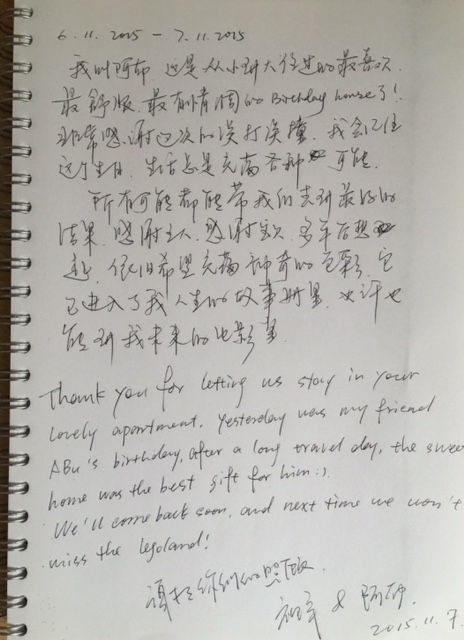 6.11.2015 - 7.11.2015
我叫阿布 这是从小到大住过的最喜欢
最舒服 最有情调的 Birthday house了!
非常感谢这次的误打误撞. 我会记住
这个生日. 生活总是充满各种 可能
所有可能都能带我们去到最好的
结果. 感谢主人. 感谢 多年后想
起, 依旧希望充满神奇的色彩, 它
已进入了我人生的故事册里 也许也
能到我未来的电影里
Thank you for letting us stay in your
lovely apartment. Yesterday was my friend
ABu's birthday, after a long travel day, the sweet
home was the best gift for him:).
We'll come back soon, and next time we won't
miss the legoland!
谢你们的照顾.
& 阿布.
2015.11.7.